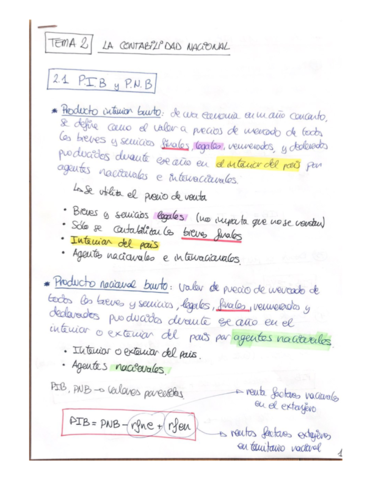 TEMA 2 LA CONTABILIDAD NACIONAL
2.1 PIB y P.N.B
• Producto interior bruto: de una economía en un año concreto,
se define como el valor a precios de mercado de todos
los bienes y servicios finales, legales, remunerados, y declarados
producidos durante ese año en el interior del país por
agentes nacionales e internacionales.
Se utiliza el precio de venta
• Bienes y servicios legales (no importa que no se vendan)
• Sólo se contabilizan los bienes finales
• Interior del país
• Agentes nacionales e internacionales.
• Producto nacional bruto: valor de precio de mercado de
todos los bienes y servicios, legales, finales, remunerados y
declarados producidos durante ese año en el
interior o exterior del país por agentes nacionales
• Interior o exterior del país.
• Agentes nacionales.
PIB, PNB → valores parecidos
→ renta factores nacionales
en el extranjero
PIB = PNB - rfne + rfen
→ rentas factores extranjeros
en territorio nacional
1